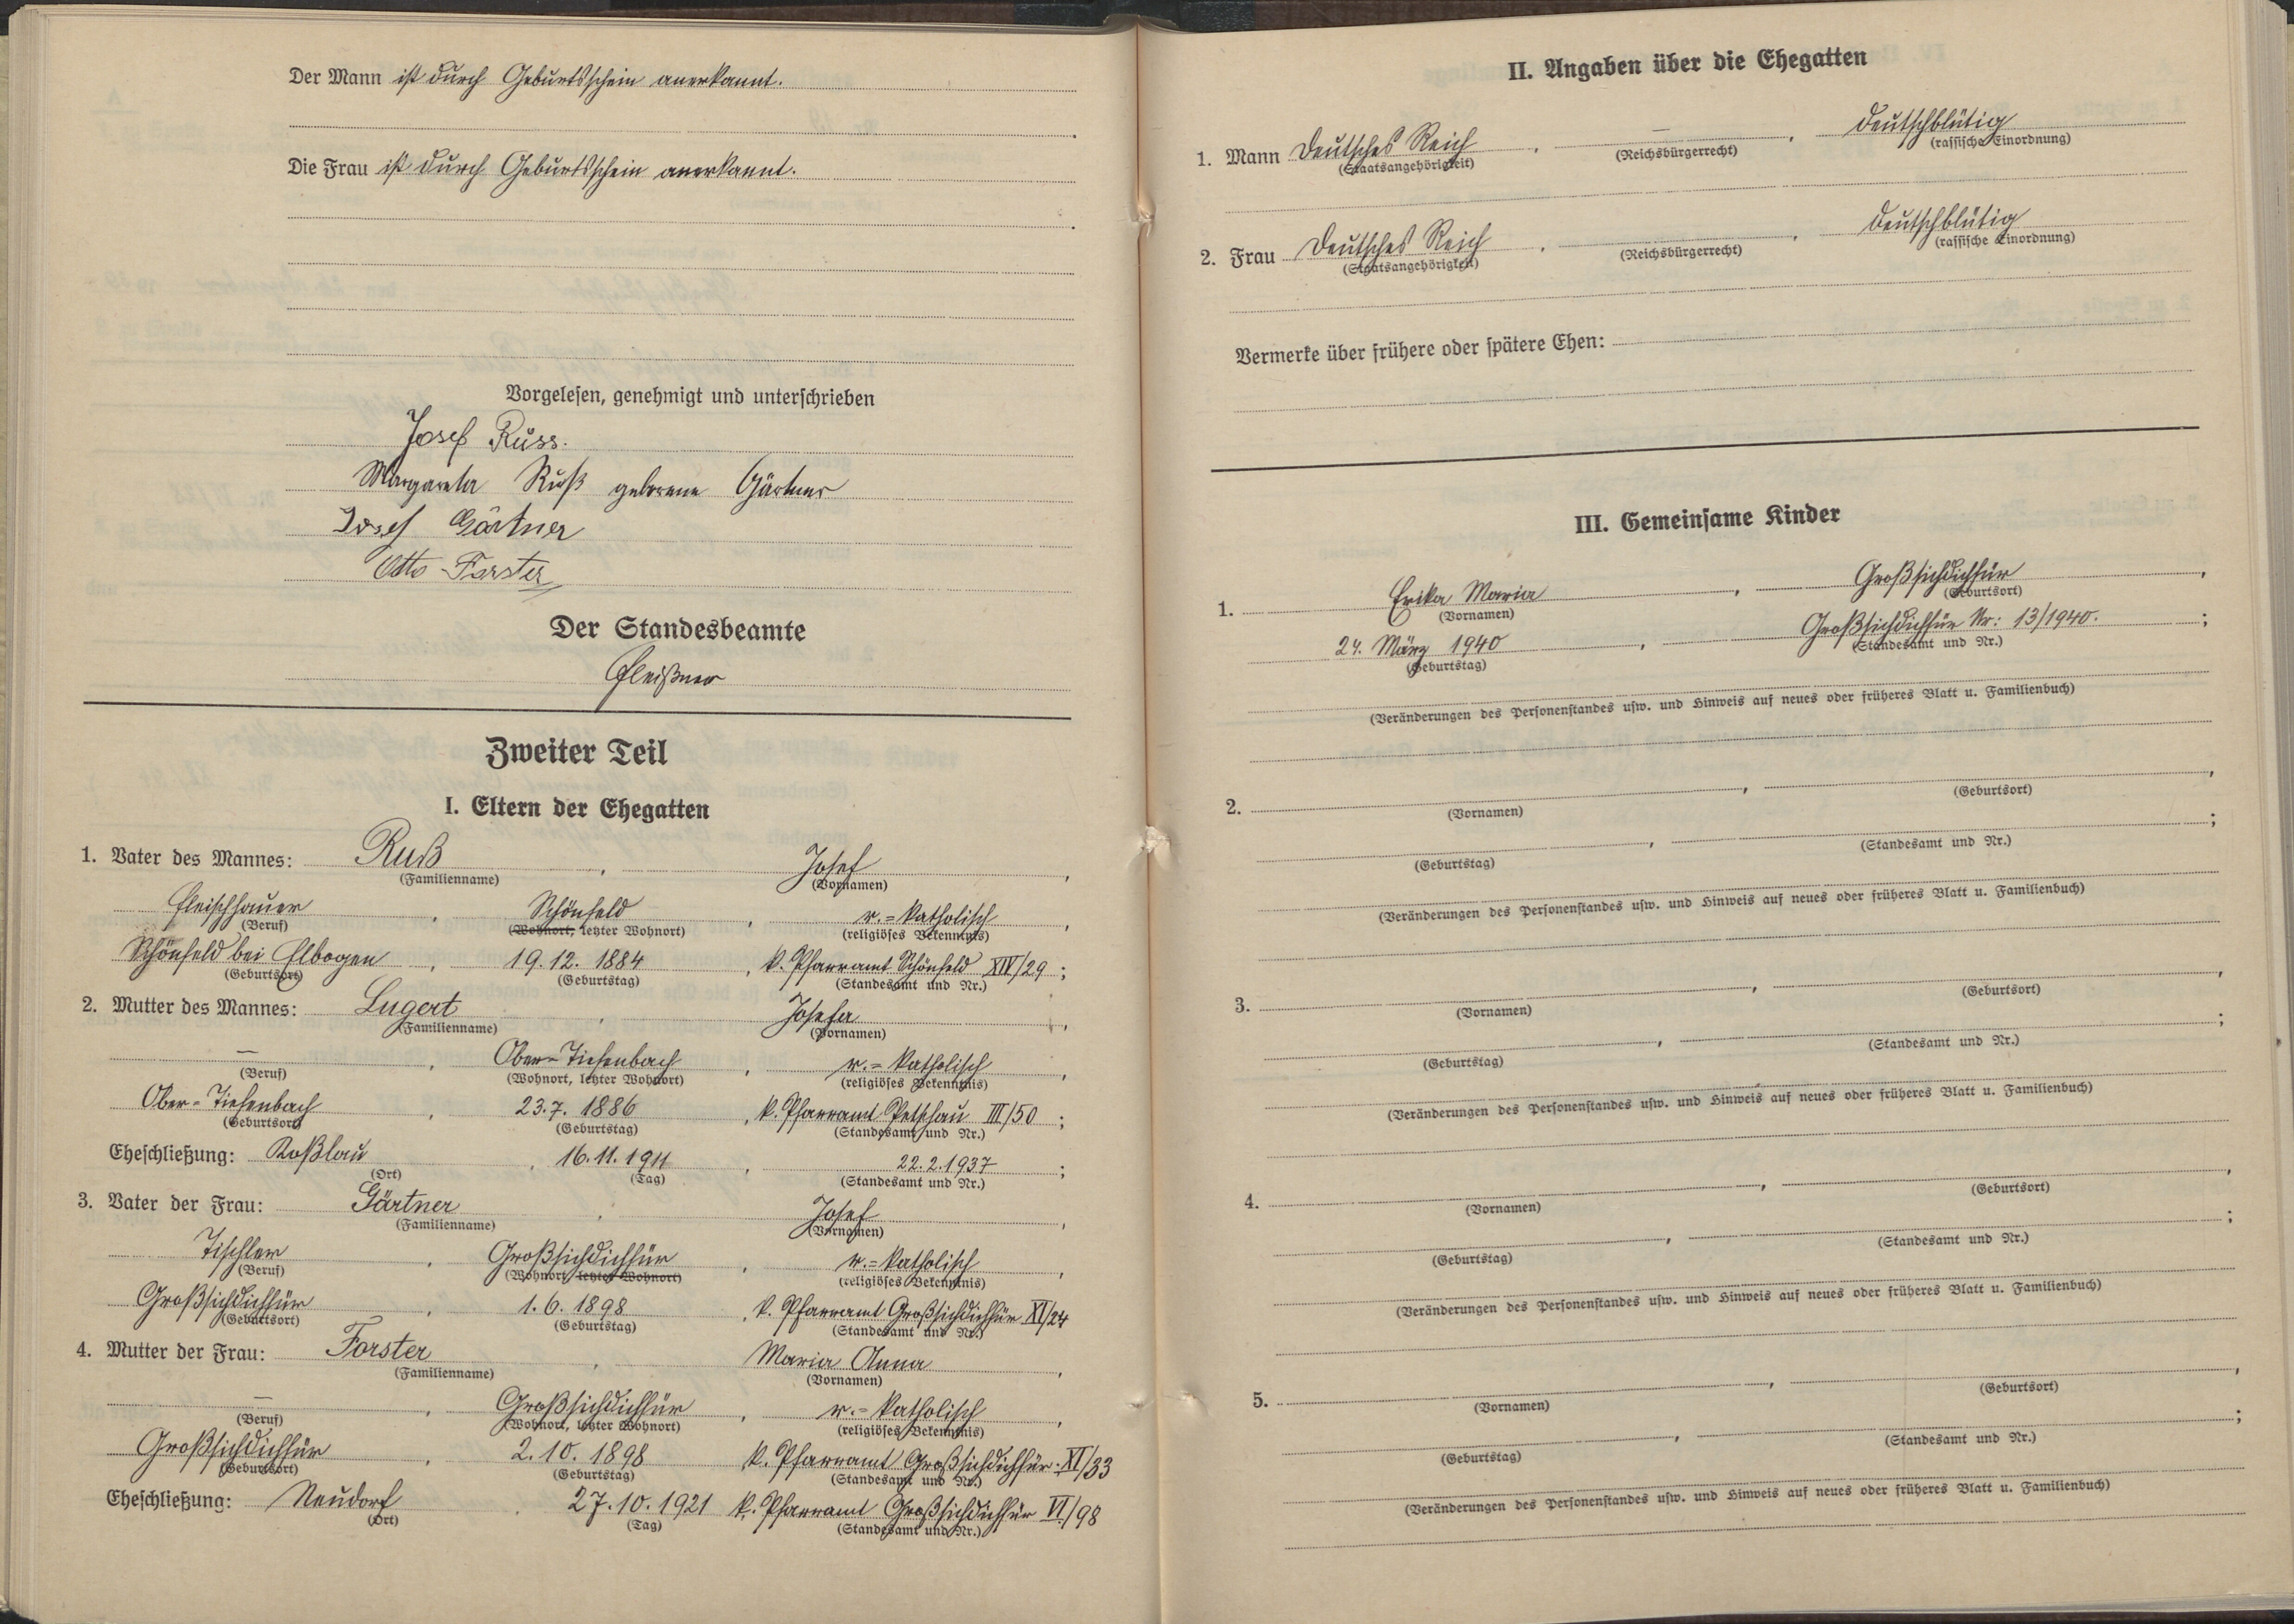 Der Mann ist durch Geburtsschein anerkannt.
Die Frau ist durch Geburtsschein anerkannt.
Vorgelesen, genehmigt und unterschrieben
Josef Russ.
Margareta Ruß geborene Gärtner
Josef Gärtner
Otto Forster
Der Standesbeamte
Fleißner
Zweiter Teil
I. Eltern der Ehegatten
1. Vater des Mannes: Ruß, Josef,
(Familienname) (Vornamen)
Fleischhauer, Schönfeld, r.=katholisch,
(Beruf) (Wohnort, letzter Wohnort) (religiöses Bekenntnis)
Schönfeld bei Elbogen, 19.12.1884, k. Pfarramt Schönfeld XIV/29;
(Geburtsort) (Geburtstag) (Standesamt und Nr.)
2. Mutter des Mannes: Lugert, Josefa,
(Familienname) (Vornamen)
—, Ober=Tiefenbach, r.=katholisch,
(Beruf) (Wohnort, letzter Wohnort) (religiöses Bekenntnis)
Ober=Tiefenbach, 23.7.1886, k. Pfarramt Petschau III/50;
(Geburtsort) (Geburtstag) (Standesamt und Nr.)
Eheschließung: Koßlau, 16.11.1911, 22.2.1937;
(Ort) (Tag) (Standesamt und Nr.)
3. Vater der Frau: Gärtner, Josef,
(Familienname) (Vornamen)
Tischler, Großsichdichfür, r.=katholisch,
(Beruf) (Wohnort, letzter Wohnort) (religiöses Bekenntnis)
Großsichdichfür, 1.6.1898, k. Pfarramt Großsichdichfür XI/24
(Geburtsort) (Geburtstag) (Standesamt und Nr.)
4. Mutter der Frau: Forster, Maria Anna,
(Familienname) (Vornamen)
—, Großsichdichfür, r.=katholisch,
(Beruf) (Wohnort, letzter Wohnort) (religiöses Bekenntnis)
Großsichdichfür, 2.10.1898 k. Pfarramt Großsichdichfür XI/33
(Geburtsort) (Geburtstag) (Standesamt und Nr.)
Eheschließung: Neudorf, 27.10.1921 k. Pfarramt Großsichdichfür VI/98
(Ort) (Tag) (Standesamt und Nr.)
II. Angaben über die Ehegatten
1. Mann Deutsches Reich, —, deutschblütig
(Staatsangehörigkeit) (Reichsbürgerrecht) (rassische Einordnung)
2. Frau Deutsches Reich, , deutschblütig
(Staatsangehörigkeit) (Reichsbürgerrecht) (rassische Einordnung)
Vermerke über frühere oder spätere Ehen:
III. Gemeinsame Kinder
1. Erika Maria, Großsichdichfür,
(Vornamen) (Geburtsort)
24. März 1940, Großsichdichfür Nr: 13/1940.;
(Geburtstag) (Standesamt und Nr.)
(Veränderungen des Personenstandes usw. und Hinweis auf neues oder früheres Blatt u. Familienbuch)
2. , ,
(Vornamen) (Geburtsort)
, ;
(Geburtstag) (Standesamt und Nr.)
(Veränderungen des Personenstandes usw. und Hinweis auf neues oder früheres Blatt u. Familienbuch)
3. , ,
(Vornamen) (Geburtsort)
, ;
(Geburtstag) (Standesamt und Nr.)
(Veränderungen des Personenstandes usw. und Hinweis auf neues oder früheres Blatt u. Familienbuch)
4. , ,
(Vornamen) (Geburtsort)
, ;
(Geburtstag) (Standesamt und Nr.)
(Veränderungen des Personenstandes usw. und Hinweis auf neues oder früheres Blatt u. Familienbuch)
5. , ,
(Vornamen) (Geburtsort)
, ;
(Geburtstag) (Standesamt und Nr.)
(Veränderungen des Personenstandes usw. und Hinweis auf neues oder früheres Blatt u. Familienbuch)